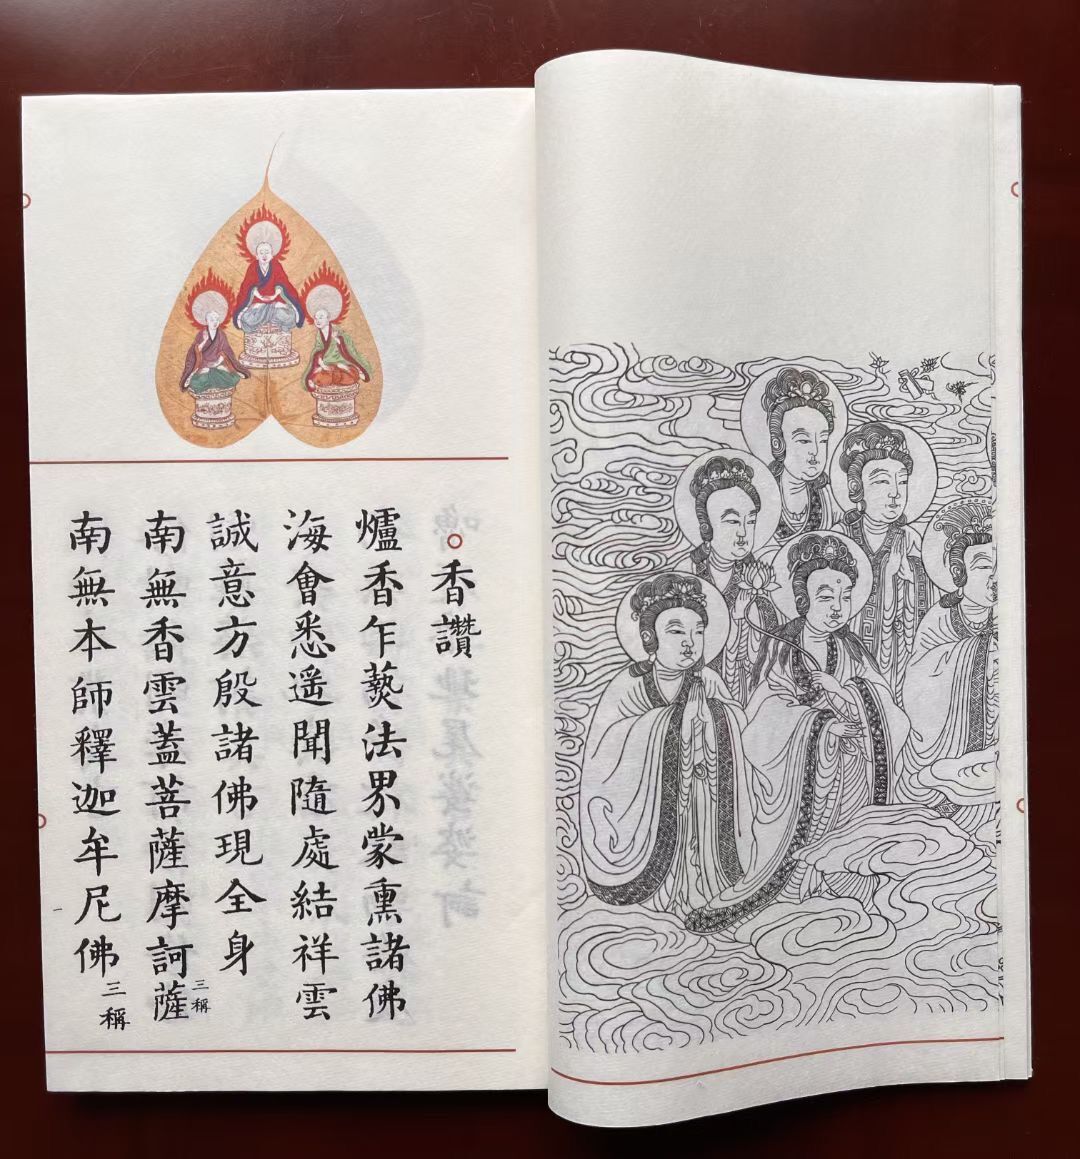 香讚
爐香乍爇法界蒙熏諸佛
海會悉遥聞隨處結祥雲
誠意方殷諸佛現全身
南無香雲蓋菩薩摩訶薩 三稱
南無本師釋迦牟尼佛 三稱